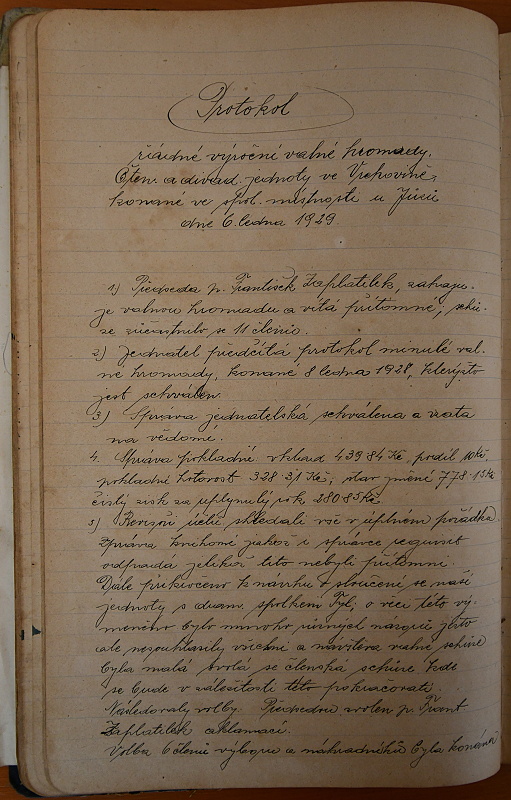 Protokol
řádné výroční valné hromady.
Čten. a divad. jednoty ve Vrchovině,
konané ve spol. místnosti u Jirů
dne 6. ledna 1929
1) Předseda p. František Zaplatílek, zahaju-
je valnou hromadu a vítá přítomné; schů-
ze súčastnilo se 11 členů.
2) Jednatel předčítá protokol minulé val-
né hromady, konané 8 ledna 1928, kterýžto
jest schválen.
3) Správa jednatelská schválena a vzata
na vědomí.
4. Správa pokladní vklad 439 84 Kč, podíl 10 Kč
pokladní hotovost 328.31 Kč; stav jmění 778.15 Kč
čistý zisk za uplynulý rok 280 85 Kč
5) Revisoři účtů shledali vše v úplném pořádku
Zpráva knihovní jakož i správce requisit
odpadá jelikož tito nebyli přítomni.
Dále přikročeno k návrhu o sloučení se naší
jednoty s dram. spolkem Tyl; o věci této vý-
měněno bylo mnoho různých názorů
ale nesouhlasily všechni a návštěva valné schůze
byla malá svolá se členská schůze kde
se bude v záležitosti této pokračovati
Následovaly volby. Předsedou zvolen p. Frant
Zaplatílek aklamací.
Volba 6 členů výboru a náhradníků byla konána